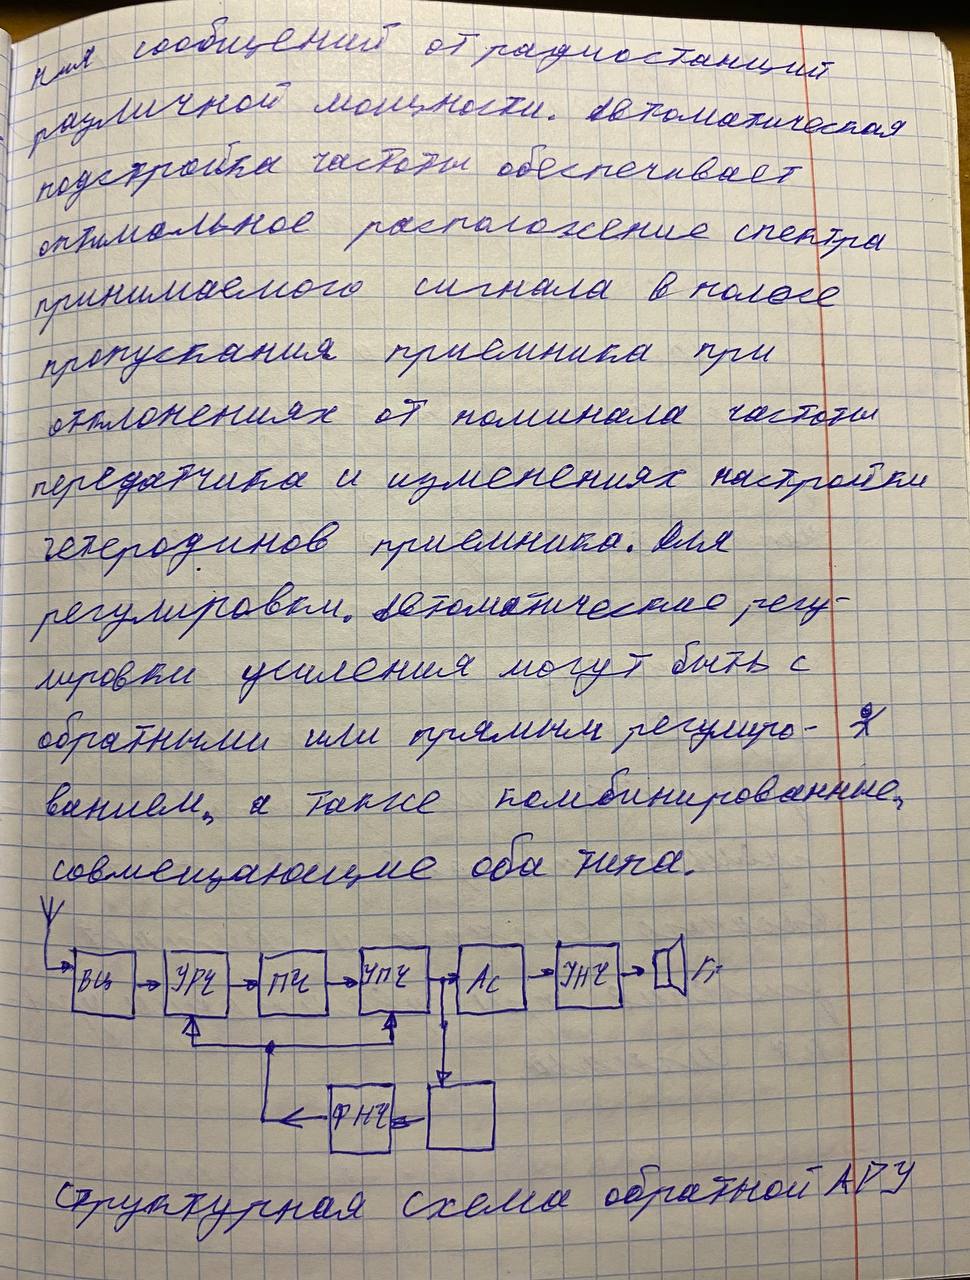 ния сообщений от радиостанций
различной мощности. Автоматическая
подстройка частоты обеспечивает
оптимальное расположение спектра
принимаемого сигнала в полосе
пропускания приемника при
отклонениях от номинала частоты
передатчика и изменениях настройки
гетеродинов приемника. Для
регулировки. Автоматические регу-
лировки усиления могут быть с
обратными или прямым регулиро-
ванием, а также комбинированные,
совмещающие оба типа.
ВЦ УРЧ ПЧ УПЧ АС УНЧ Гр
ФНЧ
Структурная схема обратной АРУ